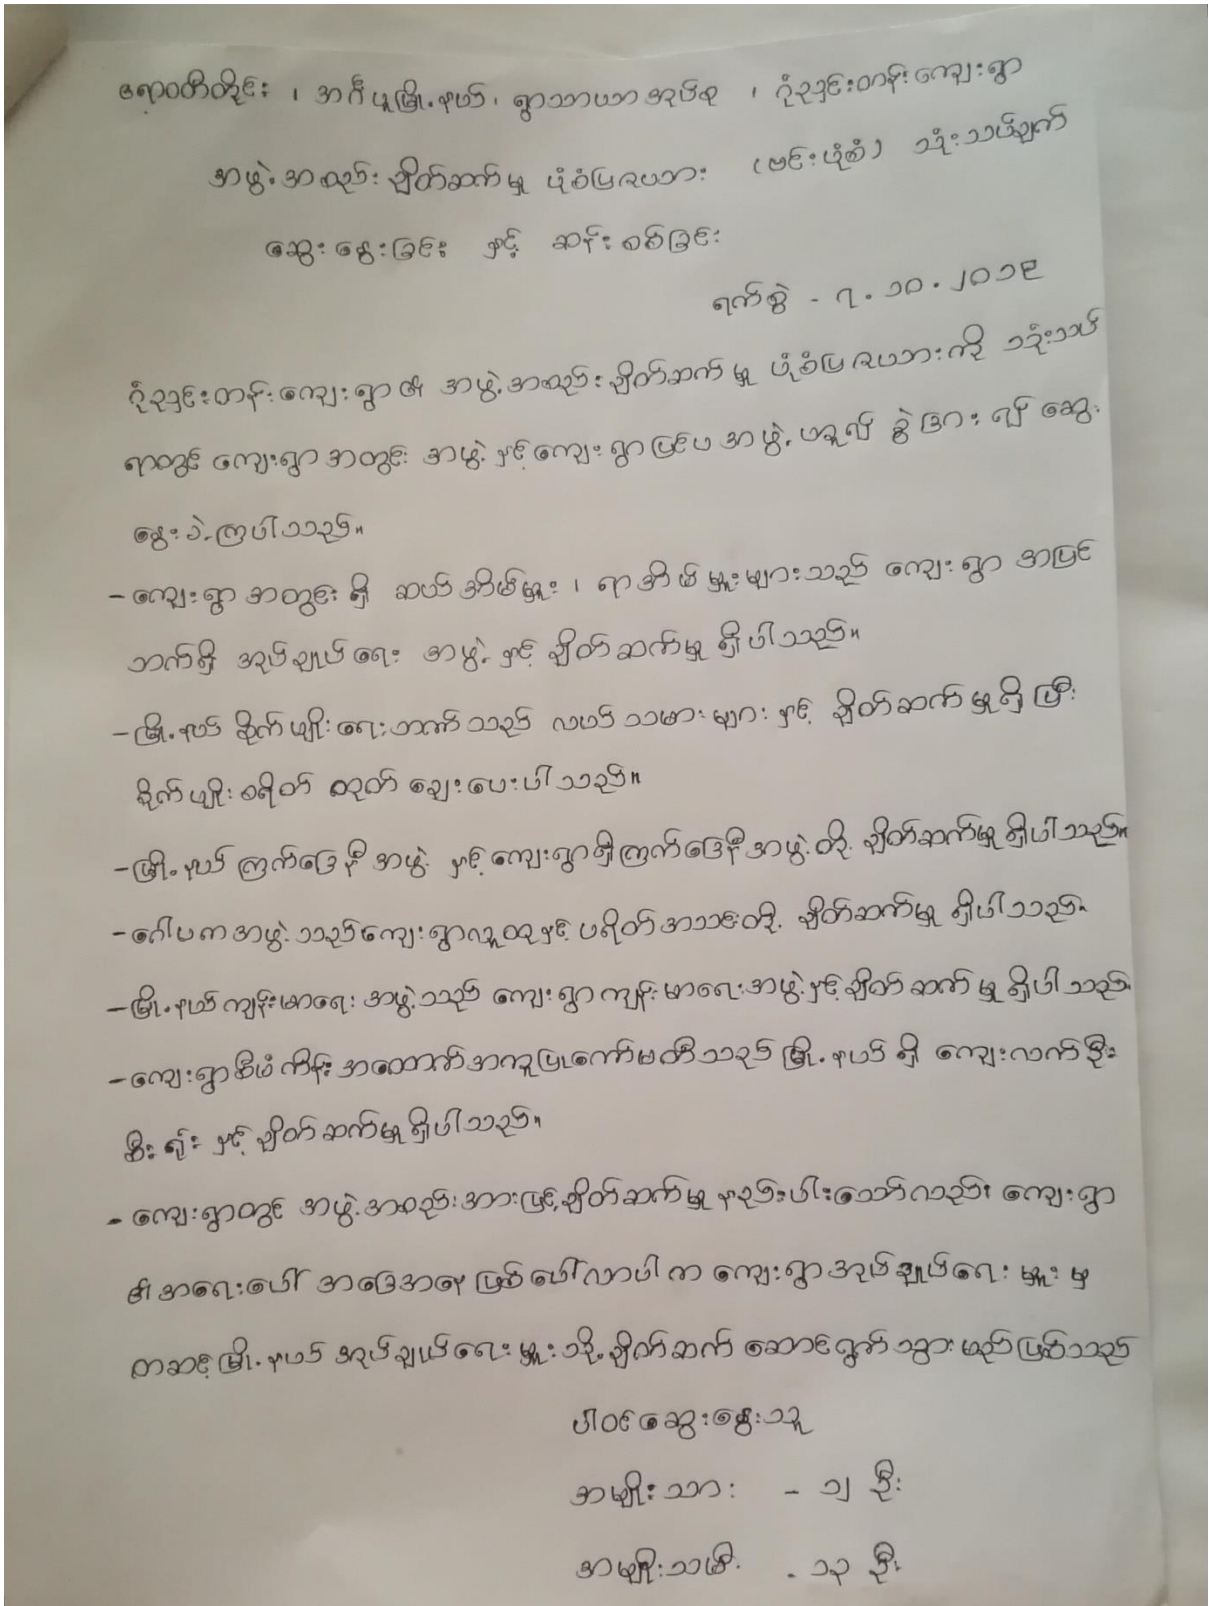 ဧရာဝတီတိုင်း ၊ အင်္ဂပူမြို့နယ်၊ ရွာသာယာအုပ်စု ၊ ဂုံညှင်းတန်းကျေးရွာ
အဖွဲ့အစည်းချိတ်ဆက်မှု ပုံစံပြဇယား (ဗင်းပုံစံ) သုံးသပ်ချက်
ဆွေးနွေးခြင်း နှင့် ဆန်းစစ်ခြင်း
ရက်စွဲ - ၇.၁၀.၂၀၁၉
ဂုံညှင်းတန်းကျေးရွာ၏ အဖွဲ့အစည်းချိတ်ဆက်မှု ပုံစံပြဇယားကို သုံးသပ်
ရာတွင် ကျေးရွာအတွင်း အဖွဲ့နှင့် ကျေးရွာပြင်ပအဖွဲ့ဟူ၍ ခွဲခြား၍ ဆွေး
နွေးခဲ့ကြပါသည်။
- ကျေးရွာအတွင်းရှိ ဆယ်အိမ်မှူး ၊ ရာအိမ်မှူးများသည် ကျေးရွာ အပြင်
ဘက်ရှိ အုပ်ချုပ်ရေး အဖွဲ့နှင့် ချိတ်ဆက်မှု ရှိပါသည်။
- မြို့နယ် စိုက်ပျိုးရေးဘဏ်သည် လယ်သမားများနှင့် ချိတ်ဆက်မှုရှိပြီး
စိုက်ပျိုးစရိတ် ထုတ်ချေးပေးပါသည်။
- မြို့နယ်ကြက်ခြေနီအဖွဲ့ နှင့် ကျေးရွာရှိကြက်ခြေနီအဖွဲ့တို့ ချိတ်ဆက်မှုရှိပါသည်။
- ဂေါပကအဖွဲ့သည် ကျေးရွာလူထုနှင့် ပရိတ်အသင်းတို့ ချိတ်ဆက်မှု ရှိပါသည်။
- မြို့နယ်ကျန်းမာရေး အဖွဲ့သည် ကျေးရွာကျန်းမာရေးအဖွဲ့နှင့် ချိတ်ဆက်မှု ရှိပါသည်။
- ကျေးရွာစီမံကိန်း အထောက်အကူပြုကော်မတီသည် မြို့နယ်ရှိ ကျေးလက်ဦး
စီးရုံး နှင့် ချိတ်ဆက်မှုရှိပါသည်။
- ကျေးရွာတွင် အဖွဲ့အစည်းအားဖြင့် ချိတ်ဆက်မှု နည်းပါးသော်လည်း ကျေးရွာ
၏အရေးပေါ် အခြေအနေ ဖြစ်ပေါ်လာပါက ကျေးရွာအုပ်ချုပ်ရေးမှူးမှ
တဆင့် မြို့နယ် အုပ်ချုပ်ရေးမှူးသို့ ချိတ်ဆက် ဆောင်ရွက်သွားမည်ဖြစ်သည်
ပါဝင်ဆွေးနွေးသူ
အမျိုးသား - ၁၂ ဦး
အမျိုးသမီး - ၁၃ ဦး